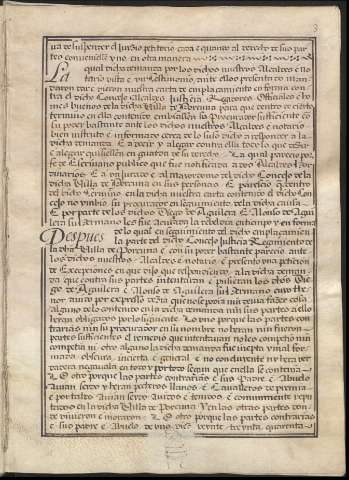 3
va de suspender el Juyzio petitorio cada e quando al derecho de sus par
tes conveniesse y no en otra manera
La qual dicha demanda por los dichos nuestros Alcaldes e no
tario vista e un testimonio, ante ellos presentado man
daron dar e dieron nuestra carta de emplazamiento en forma con
tra el dicho Concejo Alcaldes Justicia Regidores Officiales e ho
mes buenos de la dicha Villa de Porcuna para que dentro de cierto
termino en ella contenido embiassen su Procurador sufficiente con
su poder bastante ante los dichos nuestros Alcaldes e notario
bien instruto e informado cerca de lo suso dicho a responder a la
dicha demanda. E a dezir y alegar contra ella todo lo que dezir
e alegar quisiessen en guarda de su derecho. La qual parece por
fe de Escrivano publico que fue notificada a dos Alcaldes Hor
dinarios. E a un Jurado e al mayordomo del dicho Concejo de la
dicha Villa de Porcuna en sus personas. E parece que dentro
del dicho termino en la dicha nuestra carta contenido el dicho Con
cejo no vinbio, su procurador en seguimiento de la dicha causa.
E por parte de los dichos Diego de Aguilera E Alonso de Agui
lera su hermano les fue acusada la rebeldia en tiempo y en forma
Despues de lo qual en seguimiento del dicho emplazamiento
la parte del dicho Concejo Justicia Regimiento de
la dha Villa de Porcuna e con su poder bastante parecio ante
los dichos nuestros Alcaldes e notario e presento una peticion
de Excepciones en que dixo que respondiendo a la dicha deman
da que contra sus partes intentaron e pusieron los dhos Die
go de Aguilera e Alonso de Aguilera su hermano cuyo the
nor avido por expresso dezia que no se podia mi devia hazer cosa
alguna de lo contenido en la dicha demanda nin sus partes a ello
heran obligados por lo siguiente. Lo uno porque las partes con
trarias nin su procurador en su nombre no heran nin fueron
partes sufficientes. el remedio que intentavan no les competio nin
competia ni otro alguno la dicha demanda fue inepta y mal for
mada obscura incierta e general e no concluyente no hera ver
dadera negavala en todo y por todo segun que en ella se contenia
Lo otro porque las partes contrarias e sus Padre e Abuelo
Avian seydo y heran pecheros llanos e Cavalleros de premia
e por tales Avian seydo avidos e tenidos e comunmente repu
tados en la dicha Villa de Porcuna Y en las otras partes don
de vivieron e moraron. Lo otro porque las partes contrarias
e sus padre e Abuelo de uno, diez veynte treynta quarenta